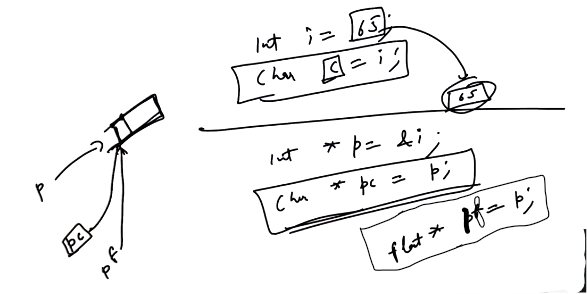 int i = 65;
Char c = i;
65
int * p = &i;
Char * pc = p;
float * pf = p;
p
pc
pf